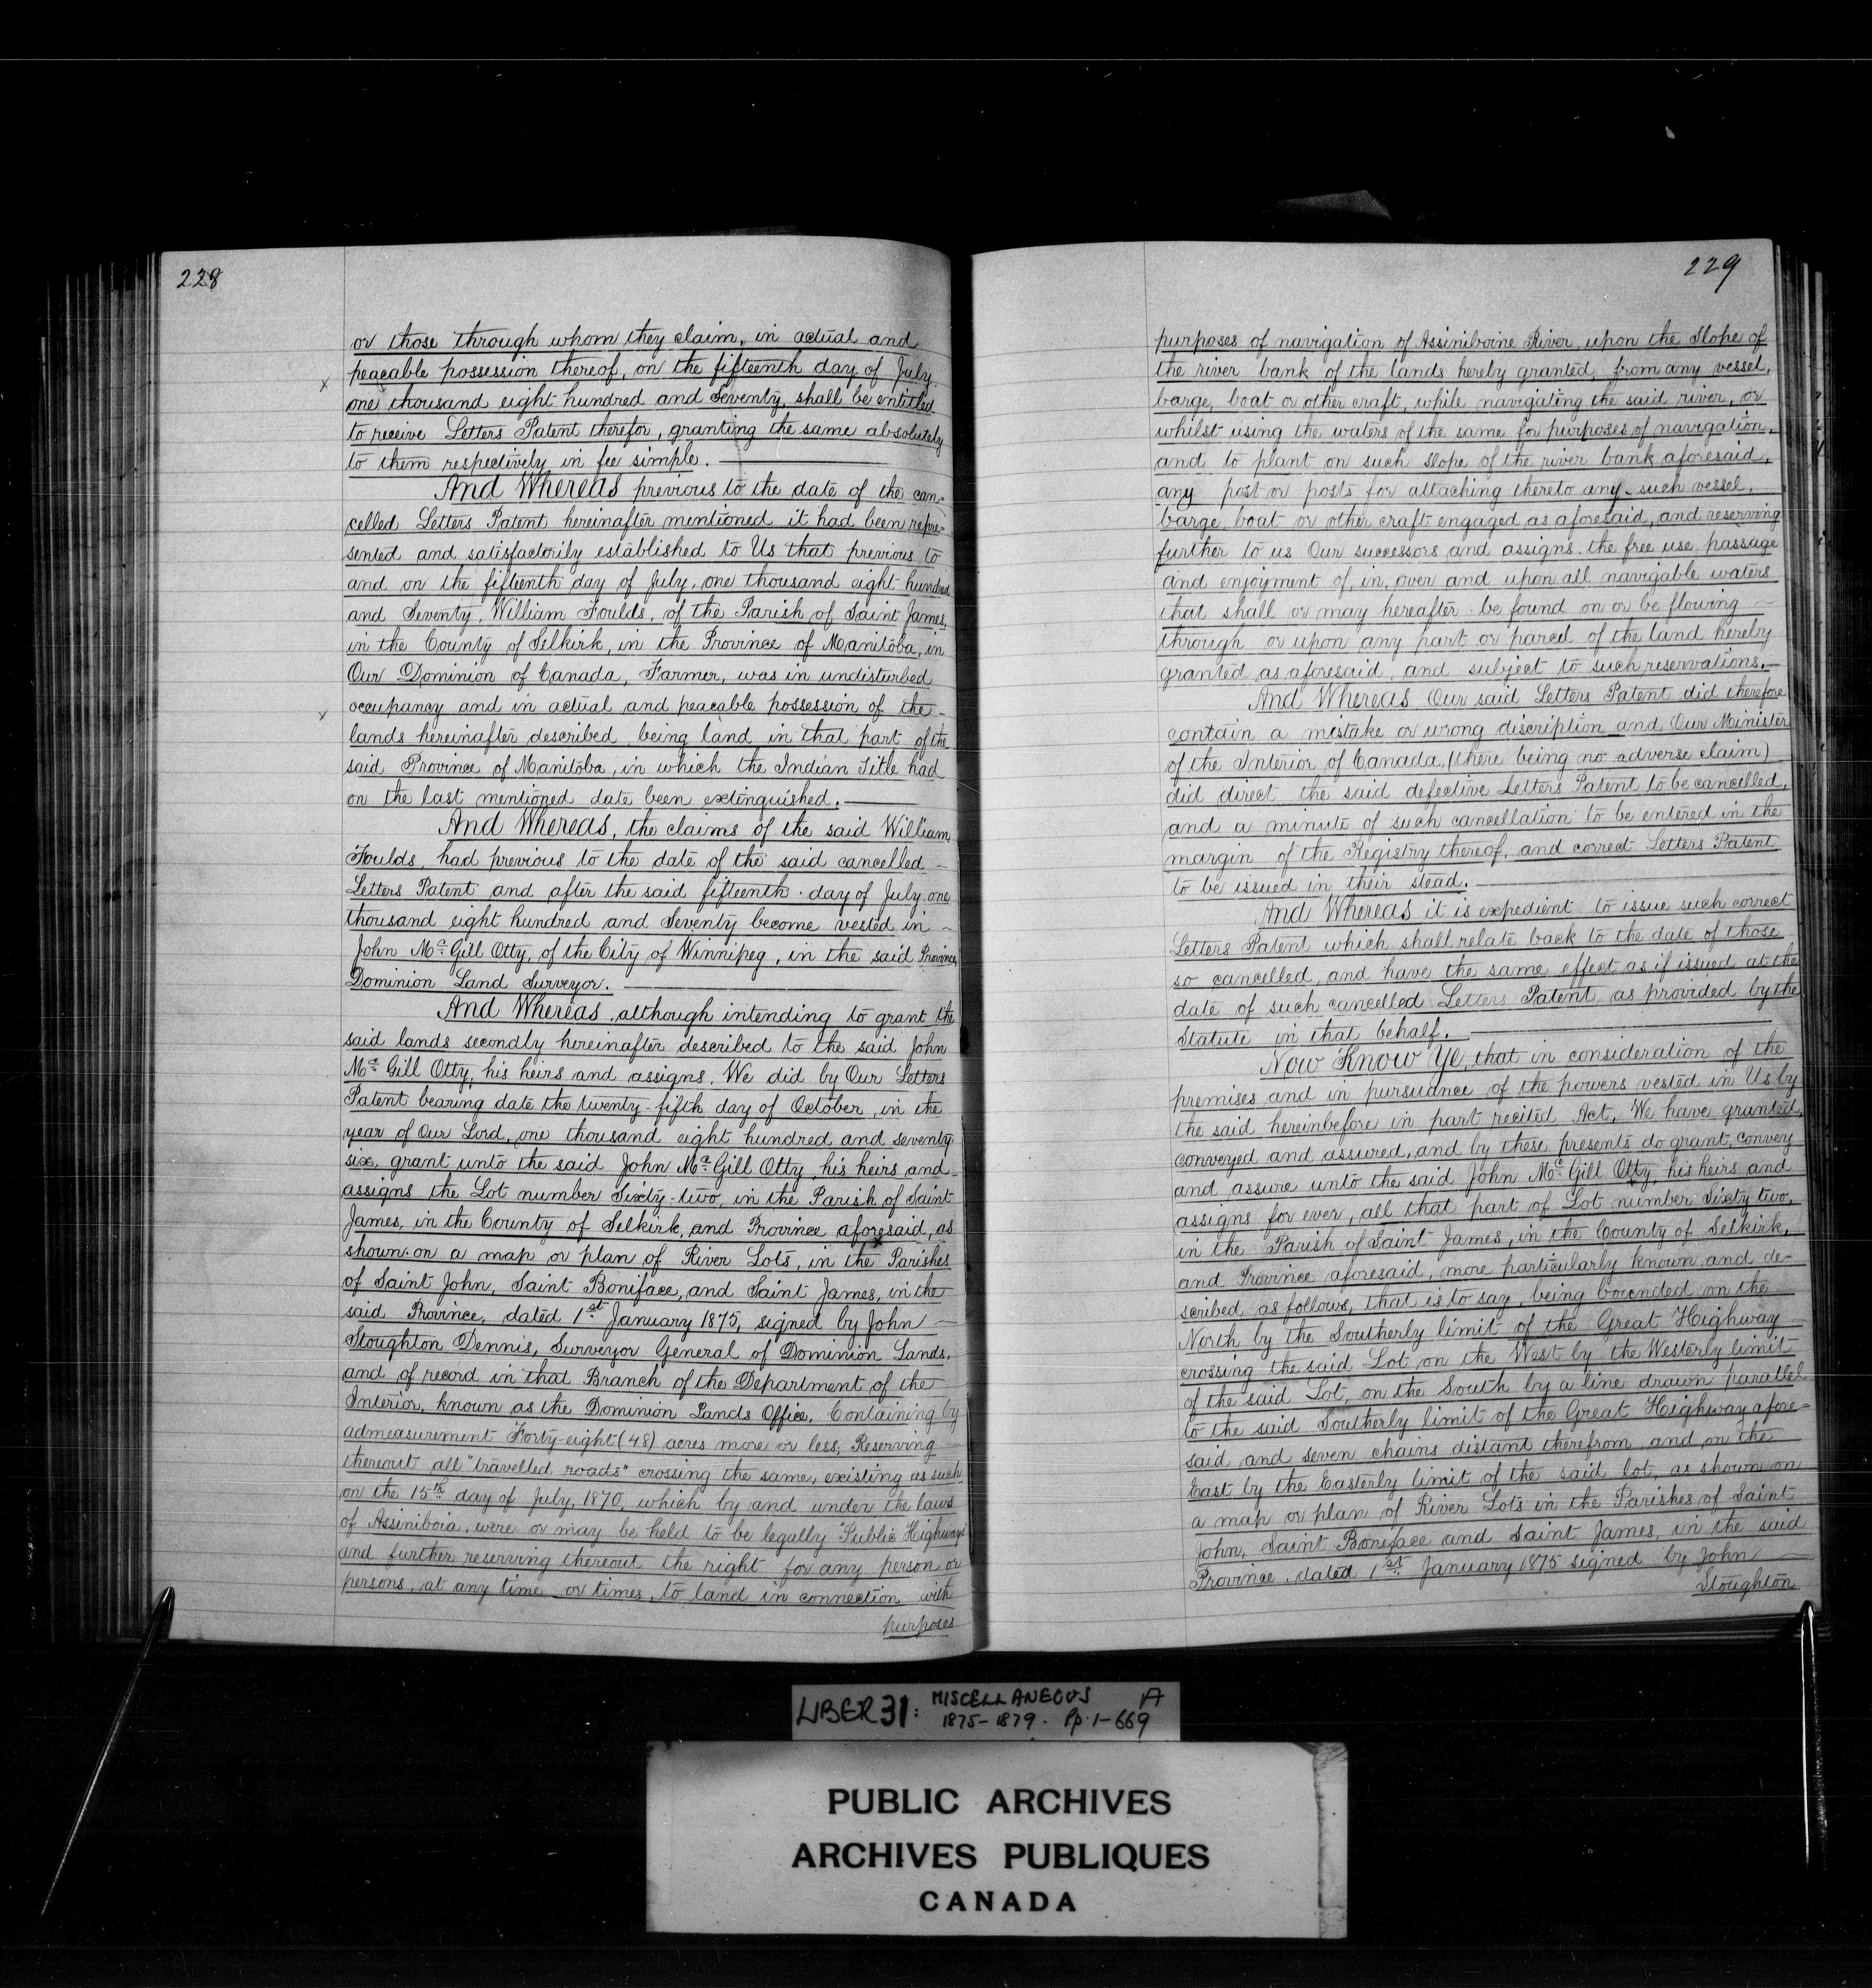 228
or those through whom they claim, in actual and
peacable possession thereof, on the fifteenth day of July,
one thousand eight hundred and Seventy, shall be entitled
to receive Letters Patent therefor, granting the same absolutely
to them respectively in fee simple.
And Whereas previous to the date of the can=
celled Letters Patent hereinafter mentioned it had been repre=
sented and satisfactorily established to Us that previous to
and on the fifteenth day of July, one thousand eight hundred
and Seventy, William Foulds, of the Parish of Saint James,
in the County of Selkirk, in the Province of Manitoba, in
Our Dominion of Canada, Farmer, was in undisturbed
occupancy and in actual and peacable possession of the
lands hereinafter described, being land in that part of the
said Province of Manitoba, in which the Indian Title had
on the last mentioned date been extinguished.
And Whereas, the claims of the said William
Foulds, had previous to the date of the said cancelled
Letters Patent and after the said fifteenth day of July, one
thousand eight hundred and Seventy become vested in
John Mc Gill Otty, of the City of Winnipeg, in the said Province,
Dominion Land Surveyor.
And Whereas, although intending to grant the
said lands secondly hereinafter described to the said John
Mc Gill Otty, his heirs and assigns, We did by Our Letters
Patent bearing date the twenty-fifth day of October, in the
year of Our Lord, one thousand eight hundred and seventy
six, grant unto the said John Mc Gill Otty, his heirs and
assigns the Lot number Sixty-two, in the Parish of Saint
James, in the County of Selkirk, and Province aforesaid, as
shown on a map or plan of River Lots, in the Parishes
of Saint John, Saint Boniface, and Saint James, in the
said Province, dated 1st January 1875, signed by John
Stoughton Dennis, Surveyor General of Dominion Lands,
and of record in that Branch of the Department of the
Interior, known as the Dominion Lands Office, Containing by
admeasurement Forty-eight (48) acres more or less; Reserving
thereout all "travelled roads" crossing the same, existing as such
on the 15th day of July, 1870, which by and under the laws
of Assiniboia, were or may be held to be legally "Public Highways"
and further reserving thereout the right for any person or
persons, at any time or times, to land in connection with
purposes
229
purposes of navigation of Assiniboine River, upon the Slope of
the river bank of the lands hereby granted, from any vessel,
barge, boat or other craft, while navigating the said river, or
whilst using the waters of the same for purposes of navigation,
and to plant on such slope of the river bank aforesaid,
any post or posts for attaching thereto any such vessel,
barge, boat or other craft engaged as aforesaid, and reserving
further to us Our successors and assigns, the free use, passage
and enjoyment of, in, over and upon all navigable waters
that shall or may hereafter be found on or be flowing
through or upon any part or parcel of the land hereby
granted as aforesaid, and subject to such reservations.
And Whereas Our said Letters Patent did therefore
contain a mistake or wrong discription and Our Minister
of the Interior of Canada, (there being no adverse claim)
did direct the said defective Letters Patent to be cancelled,
and a minute of such cancellation to be entered in the
margin of the Registry thereof, and correct Letters Patent
to be issued in their stead.
And Whereas it is expedient to issue such correct
Letters Patent which shall relate back to the date of those
so cancelled, and have the same effect as if issued at the
date of such cancelled Letters Patent, as provided by the
Statute in that behalf.
Now Know Ye, that in consideration of the
premises and in pursuance of the powers vested in Us by
the said hereinbefore in part recited Act, We have granted,
conveyed and assured, and by these presents do grant, convey
and assure unto the said John Mc Gill Otty, his heirs and
assigns for ever, all that part of Lot number Sixty-two,
in the Parish of Saint James, in the County of Selkirk,
and Province aforesaid, more particularly known and de-
scribed as follows, that is to say, being bounded on the
North by the Southerly limit of the Great Highway
crossing the said Lot on the West by the Westerly limit
of the said Lot, on the South by a line drawn parallel
to the said Southerly limit of the Great Highway afore=
said and seven chains distant therefrom, and on the
East by the Easterly limit of the said lot, as shown on
a map or plan of River Lots in the Parishes of Saint
John, Saint Boniface and Saint James, in the said
Province, dated 1st January 1875 signed by John
Stoughton
LIBER 31: MISCELLANEOUS A
1875-1879. Pp. 1-669
PUBLIC ARCHIVES
ARCHIVES PUBLIQUES
CANADA